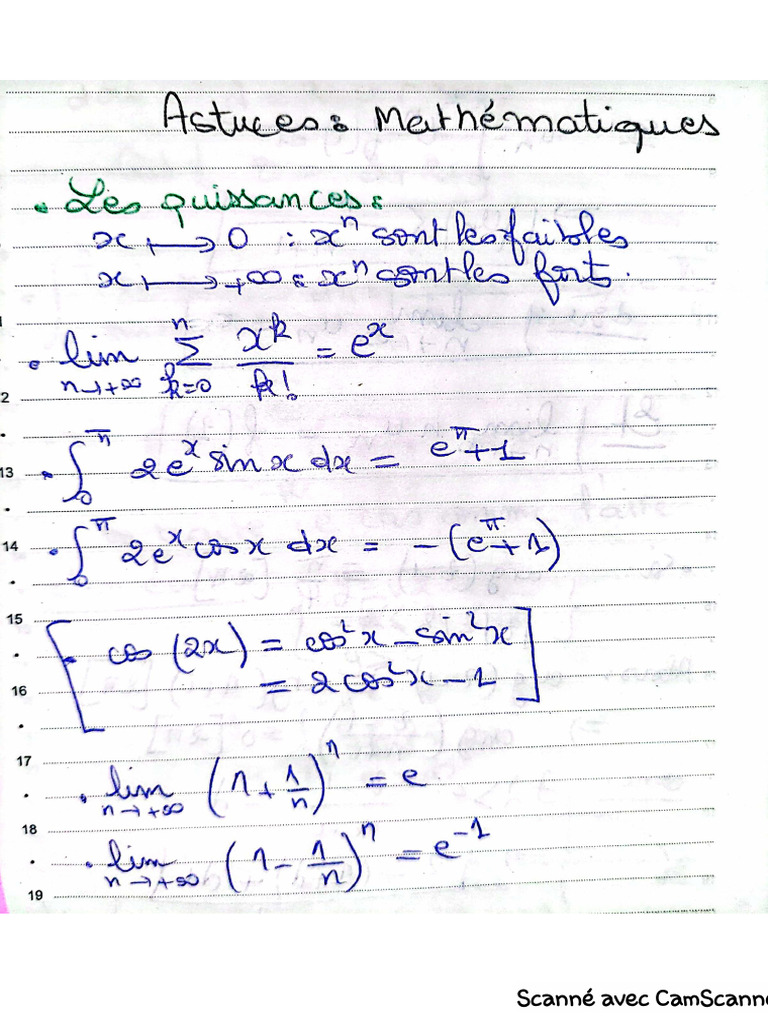 Astuces : Mathématiques
• Les puissances :
x ⟼ 0 : xⁿ sont les faibles
x ⟼ +∞ : xⁿ sont les fort.
• lim_{n→+∞} Σ_{k=0}^{n} x^k / k! = e^x
• ∫_0^π 2e^x sin x dx = e^π + 1
• ∫_0^π 2e^x cos x dx = -(e^π + 1)
[ • cos (2x) = cos²x - sin²x
= 2cos²x - 1 ]
• lim_{n→+∞} (1 + 1/n)^n = e
• lim_{n→+∞} (1 - 1/n)^n = e^{-1}
12
13
14
15
16
17
18
19
Scanné avec CamScanne